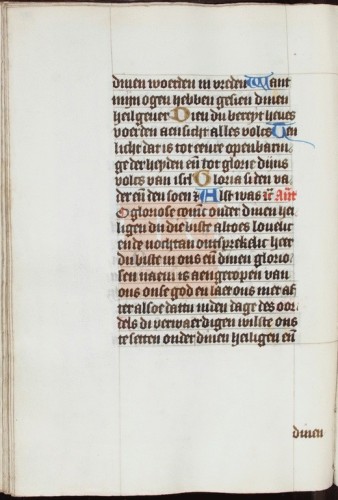 dinen woerden in vreden Want
mijn ogen hebben gesien dinen
heilgever Dien du bereyt heves
voer den aensicht alles volcs Een
licht dat is tot eenre openbarin
ge der heyden eñ tot glorie dijns
volcs van isrl Gloria si den va
der eñ den soen Alst was Añt
O gloriose coninc onder dinen hei
ligen du die biste altoes lovelic
ende nochtan onsprekelic heer
du biste in ons eñ dinen glorio
sen naem is aengeropen van
ons onse god en laet ons niet af
ter alsoe dattu inden dage des oor
dels di verwaerdigen wilste ons
te setten onder dinen heiligen eñ
dinen